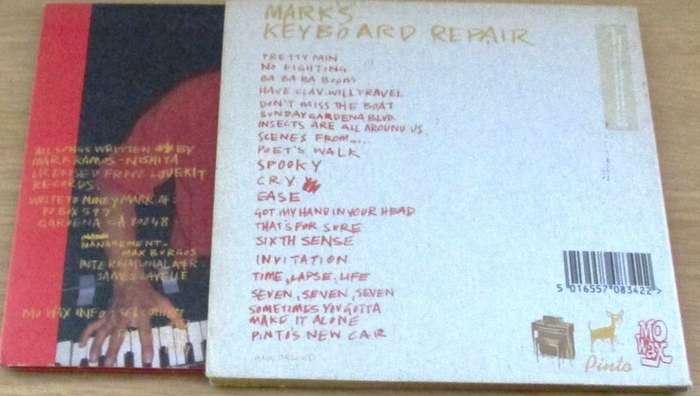 MARK'S
KEYBOARD REPAIR
PRETTY PAIN
NO FIGHTING
BA BA BA BOOM!
HAVE CLAV. WILL TRAVEL
DON'T MISS THE BOAT
SUNDAY GARDENA BLVD.
INSECTS ARE ALL AROUND US
SCENES FROM....
POET'S WALK
SPOOKY
CRY
EASE
GOT MY HAND IN YOUR HEAD
THAT'S FOR SURE
SIXTH SENSE
INVITATION
TIME, LAPSE, LIFE
SEVEN, SEVEN, SEVEN
SOMETIMES YOU GOTTA
MAKE IT ALONE
PINTO'S NEW CAR
5 016557 083422 >
Pinto
MO
WAX
ALL SONGS WRITTEN BY
MARK RAMOS-NISHITA
LICENSED FROM LOVEKIT
RECORDS.
WRITE TO MONEY MARK AT
PO BOX 597
GARDENA CA 90248
MANAGEMENT-
MAX BURGOS
INTERNATIONAL A+R
JAMES LAVELLE
MO WAX INFO: